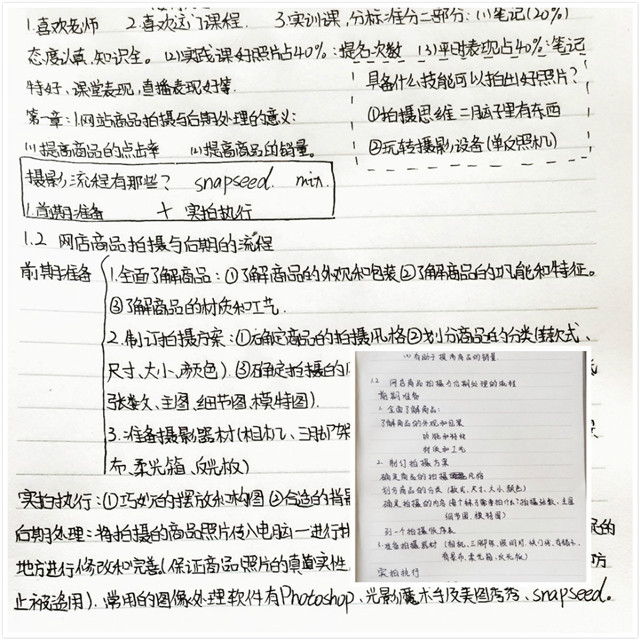 1.喜欢老师 2.喜欢这门课程. 3.实训课,分标准分三部分:(1)笔记(20%)
态度认真,知识全。(2)实践课好照片占40%:提名次数 (3)平时表现占40%:笔记
特好、课堂表现,直播表现好等.
具备什么技能可以拍出好照片?
①拍摄思维 二脑子里有东西
②玩转摄影设备(单反照机)
第一章:1.网站商品拍摄与后期处理的意义:
(1)提高商品的点击率 (2)提高商品的销量。
摄影流程有那些? snapseed. mix.
1.前期准备 + 实拍执行
1.2 网店商品拍摄与后期的流程
前期准备
1.全面了解商品:①了解商品的外观和包装②了解商品的功能和特征。
③了解商品的材质和工艺.
2.制订拍摄方案:①确定商品的拍摄风格②划分商品的分类(款式、
尺寸、大小、颜色).③确定拍摄的
张数、主图、细节图、模特图).
3.准备摄影器材(相机、三脚架
布、柔光箱、反光板)
实拍执行:①巧妙的摆放和构图②合适的
后期处理:将拍摄的商品照片传入电脑一进行
地方进行修改和完善(保证商品照片的真实性
止被盗用).常用的图像处理软件有Photoshop、光影魔术手及美图秀秀、snapseed。
(2)有助于提高商品的销量
1.2 网店商品拍摄与后期处理的流程
前期准备
1.全面了解商品:
了解商品的外观和包装
功能和特征
材质和工艺
2.制订拍摄方案
确定商品的拍摄风格
划分商品的分类(款式、尺寸、大小、颜色)
确定拍摄的内容
细节图、模特图)
列一个拍摄顺序表
3.准备拍摄器材(相机、三脚架、照明灯、快门线、存储卡、
背景布、柔光箱、反光板)
实拍执行